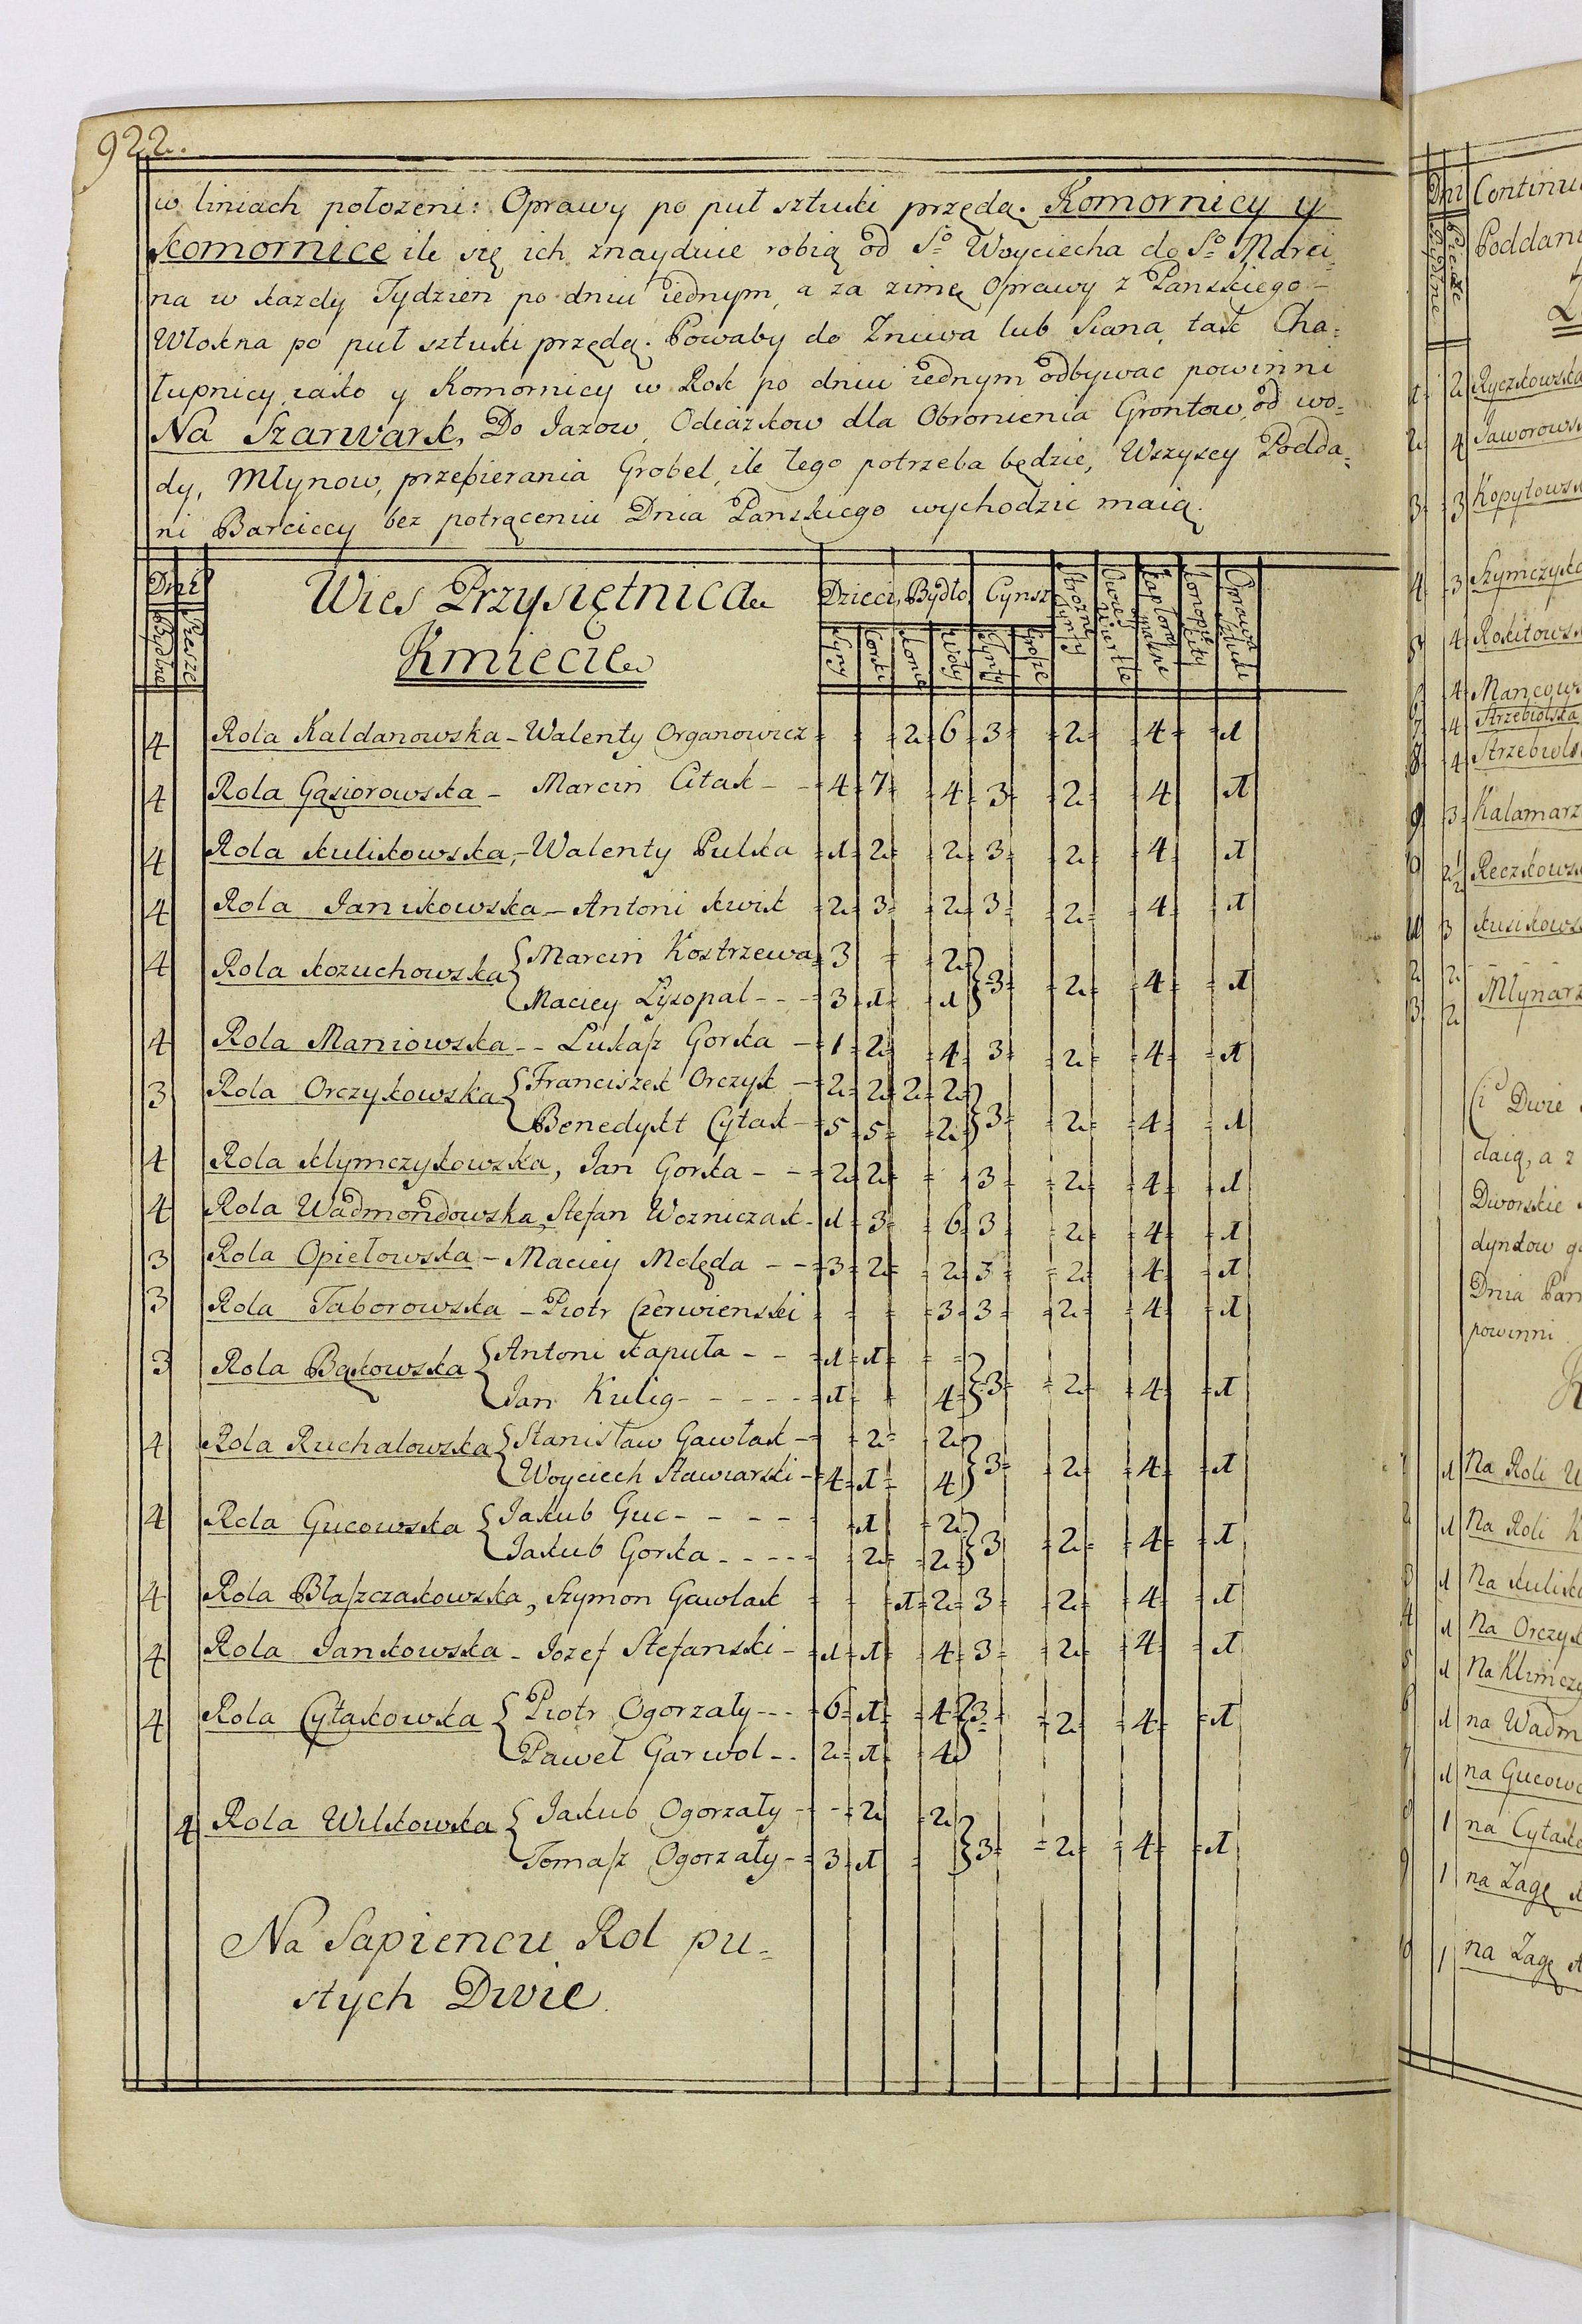 922.
w liniach położeni: Oprawy po puł sztuki przędą. Komornicy y
Komornice ile się ich znayduie robią od So Woyciecha do So Marci=
na w kazdy Tydzien po dniu iednym, a za zimę Oprawy z Panskiego
Włokna po puł sztuki przędą. Powaby do Zniwa lub Siana, tak Cha=
łupnicy iako y Komornicy w Rok po dniu iednym odbywac powinni
Na Szarwark, Do Jazow, Odciazkow dla Obronienia Grontow, od wo=
dy, Młynow, przebierania Grobel, ile tego potrzeba będzie, Wszyscy Podda=
ni Barciccy bez potrąceniu Dnia Panskiego wychodzic maią.
Dni Wies Przysiętnica Dzieci, Bydło, Cynsz
Bydlne Piesze Kmiecie Syny Corki Konie Woły Zynty Grosze
4 Rola Kaldanowska - Walenty Organowicz = = = 2 = 6 = 3 = = 2 = = 4 = = 1
4 Rola Gąsiorowska - Marcin Citak - - = 4 = 7 = = 4 = 3 = = 2 = = 4 1
4 Rola Kulikowska, - Walenty Pulka = 1 = 2 = = 2 = 3 = = 2 = = 4 = 1
4 Rola Janikowska - Antoni Kwik = 2 = 3 = = 2 = 3 = = 2 = = 4 = 1
4 Rola Kozuchowska { Marcin Kostrzewa = 3 = = 2 } = 3 = = 2 = = 4 = = 1
Maciey Lysopal - - - = 3 = 1 = = 1
4 Rola Maniowska - - Lukasz Gorka - = 1 = 2 = = 4 = 3 = = 2 = = 4 = = 1
3 Rola Orczykowska { Franciszek Orczyk - = 2 = 2 = 2 = 2 } 3 = = 2 = = 4 = = 1
Benedykt Cytak - = 5 = 5 = = 2
4 Rola Klymczykowska, Jan Gorka - - = 2 = 2 = = = 3 = = 2 = = 4 = = 1
4 Rola Wadmondowska, Stefan Wozniczak - 1 = 3 = = 6 = 3 = 2 = = 4 = = 1
3 Rola Opiełowska - Maciey Molęda - - = 3 = 2 = = 2 = 3 = = 2 = = 4 = = 1
3 Rola Taborowska - Piotr Czerwienski = = = = 3 = 3 = = 2 = = 4 = = 1
3 Rola Bąkowska { Antoni Kapuła - - = 1 = 1 = = = } = 3 = = 2 = = 4 = = 1
Jan Kulig - - - - - = 1 = = 4
4 Rola Ruchalowska { Stanisław Gawłak - = = 2 = = 2 } 3 = = 2 = = 4 = = 1
Woyciech Stawiarski - = 4 = 1 = = 4
4 Rola Gucowska { Jakub Guc - - - - - = 1 = 2 } 3 = 2 = = 4 = = 1
Jakub Gorka - - - - - = 2 = = 2
4 Rola Błaszczakowska, Szymon Gawlak = = = 1 = 2 = 3 = = 2 = = 4 = = 1
4 Rola Jankowska - Jozef Stefanski - = 1 = 1 = = 4 = 3 = = 2 = = 4 = = 1
4 Rola Cytakowska { Piotr Ogorzały - - - = 6 = 1 = = 4 } 3 = = 2 = = 4 = = 1
Paweł Garwol - - 2 = 1 = = 4
4 Rola Wilkowska { Jakub Ogorzały - = - = 2 = 2 } 3 = = 2 = = 4 = = 1
Tomasz Ogorzały - = 3 = 1 =
Na Sapiencu Rol pu=
stych Dwie.
Dni Continu
Poddan
1 2 Ryczkowska
2 4 Jaworows
3 3 Kopytows
4 3 Szymczyko
5 4 Rokitows
6 4 Mancow
7 4 Strzebolska
8 4 Strzebols
9 3 Kalamarz
Reczkows
3 Kusikows
2 2 Młynarz
3 2
Dwie
daią, a z
Dworskie
dynkow
Dnia Pan
powinni
1 Na Roli
2 1 Na Roli K
3 1 Na Kulik
4 1 Na Orczyk
5 1 Na Klimczy
6 1 na Wadm
7 1 na Gucow
8 1 na Cytako
9 1 na Zagę
10 1 na Zagę